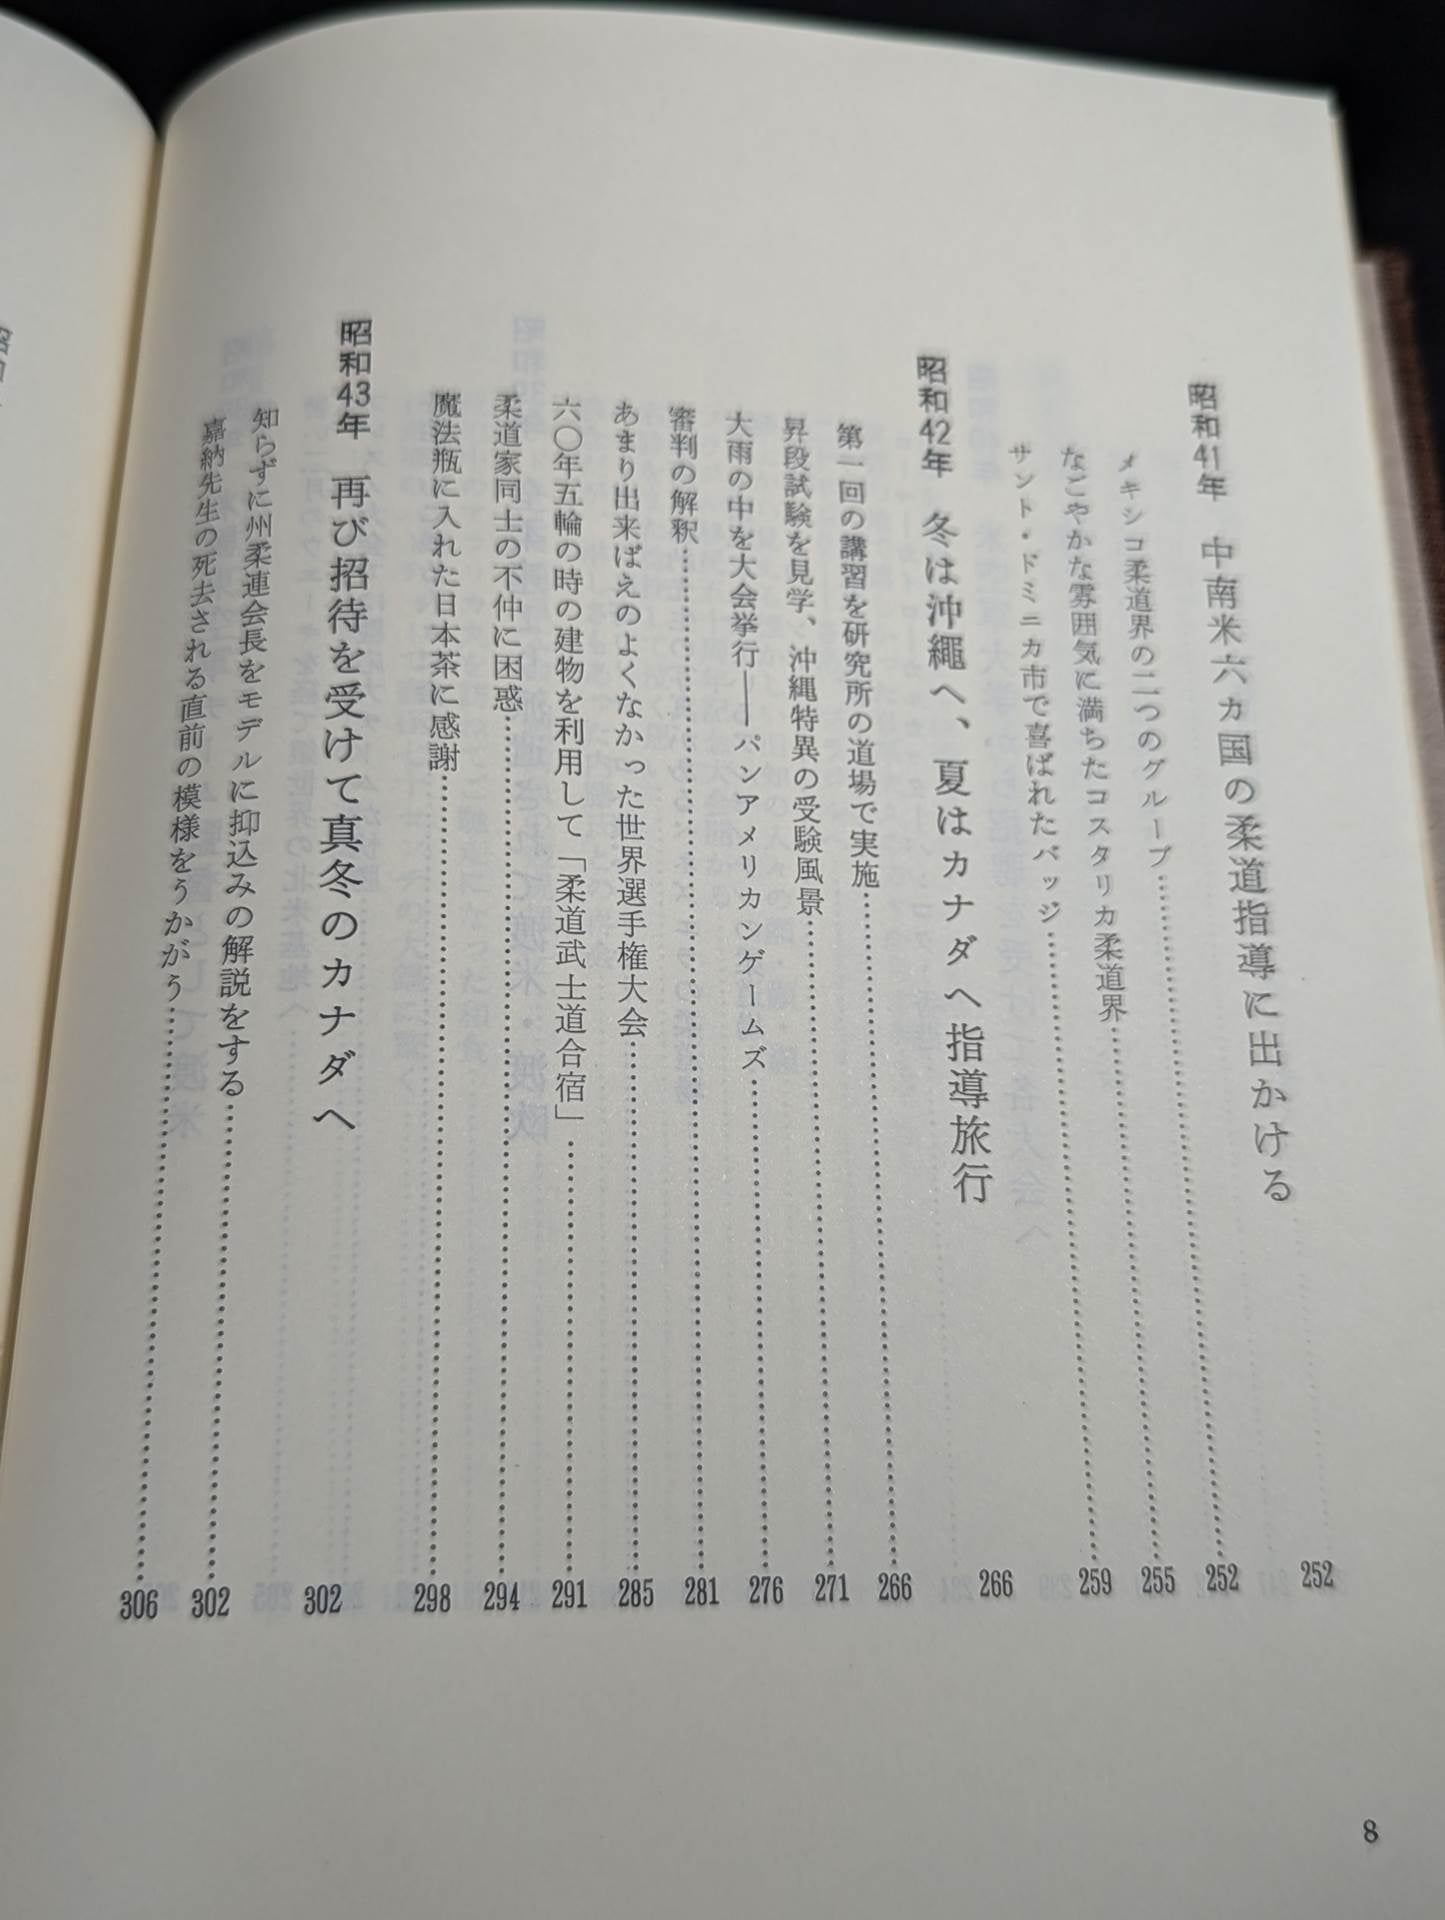 昭和41年 中南米六カ国の柔道指導に出かける 252
メキシコ柔道界の二つのグループ…………252
なごやかな雰囲気に満ちたコスタリカ柔道界…………255
サント・ドミニカ市で喜ばれたバッジ…………259
昭和42年 冬は沖縄へ、夏はカナダへ指導旅行 266
第一回の講習を研究所の道場で実施…………266
昇段試験を見学、沖縄特異の受験風景…………271
大雨の中を大会挙行――パンアメリカンゲームズ…………276
審判の解釈…………281
あまり出来ばえのよくなかった世界選手権大会…………285
六〇年五輪の時の建物を利用して「柔道武士道合宿」…………291
柔道家同士の不仲に困惑…………294
魔法瓶に入れた日本茶に感謝…………298
昭和43年 再び招待を受けて真冬のカナダへ 302
知らずに州柔連会長をモデルに抑込みの解説をする…………302
嘉納先生の死去される直前の模様をうかがう…………306
8